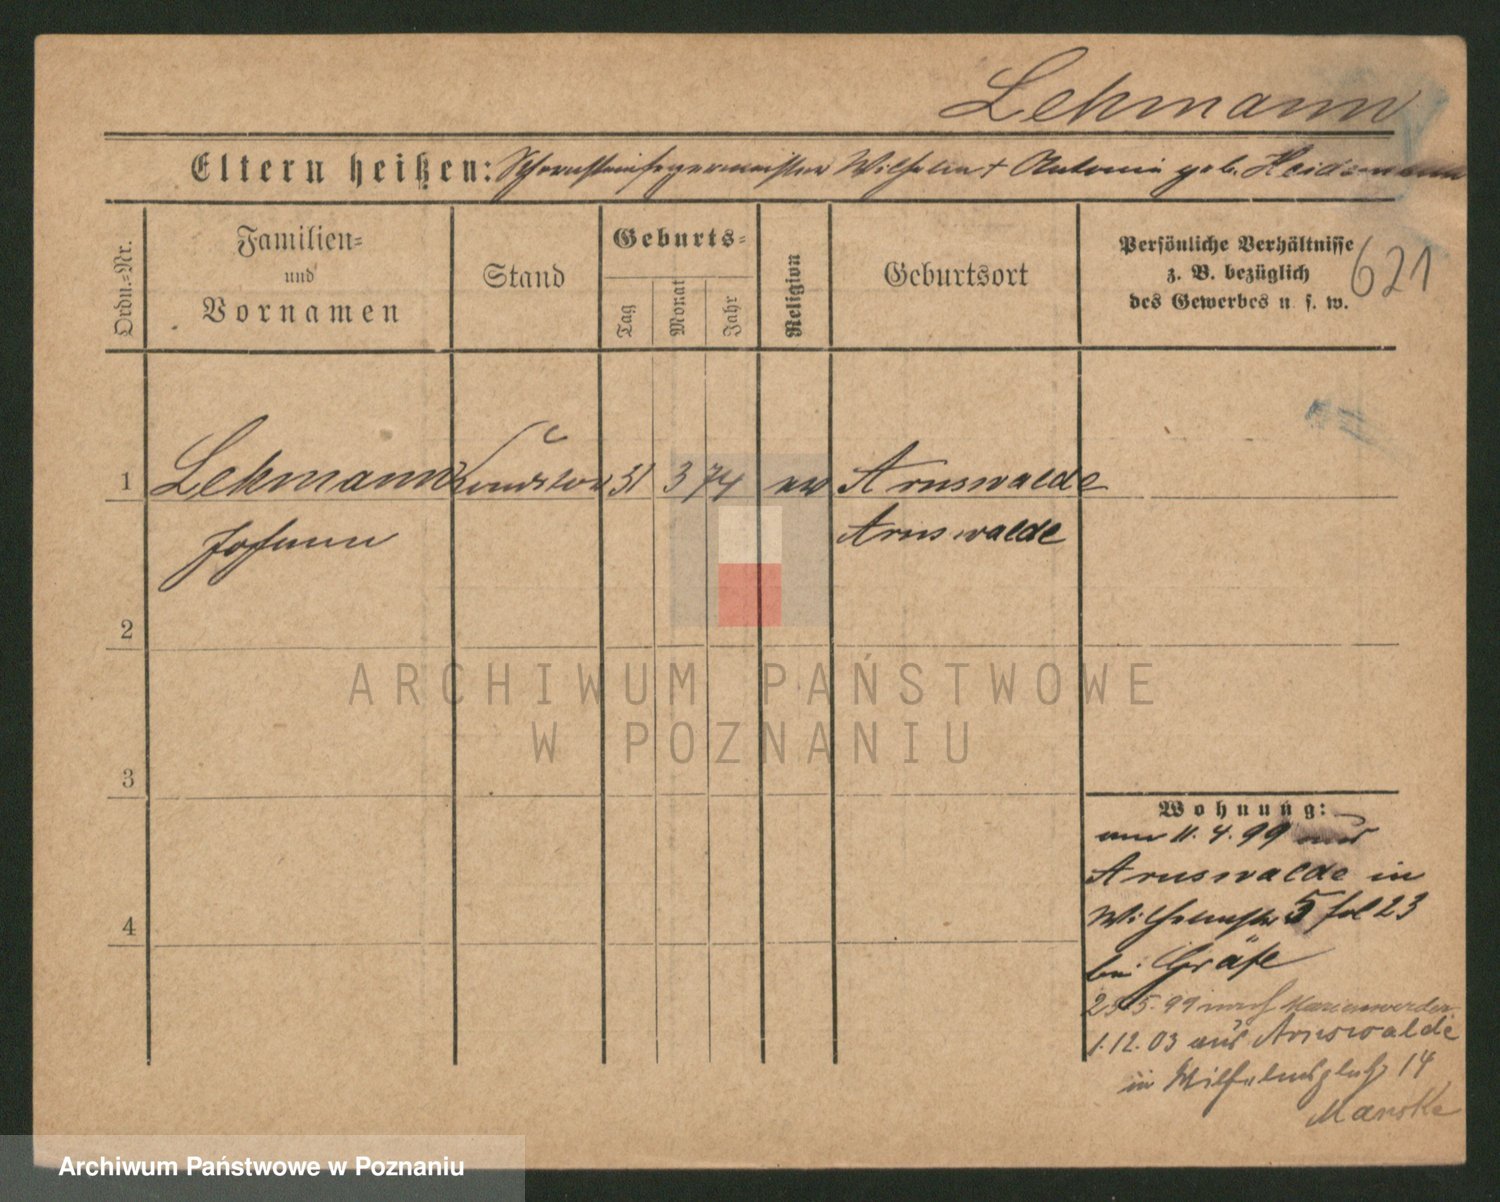 Lehmann
Eltern heißen: Schornsteinfegermeister Wilhelm + Antonie geb. Heidemann
Ordn.-Nr.
Familien-
und
Vornamen
Stand
Geburts-
Tag
Monat
Jahr
Religion
Geburtsort
Persönliche Verhältnisse
z. B. bezüglich
des Gewerbes u. s. w.
621
1 Lehmann 31 3 74 ev Arnswalde
Johann Arnswalde
2
3
4
Wohnung:
am 11.4.99 aus
Arnswalde in
Wilhelmstr 5 fol 23
bei Gräfe
5.99 nach Marienwerder
1.12.03 aus Arnswalde
in Wilhelmsplatz 14
Manske
ARCHIWUM PAŃSTWOWE
W POZNANIU
Archiwum Państwowe w Poznaniu